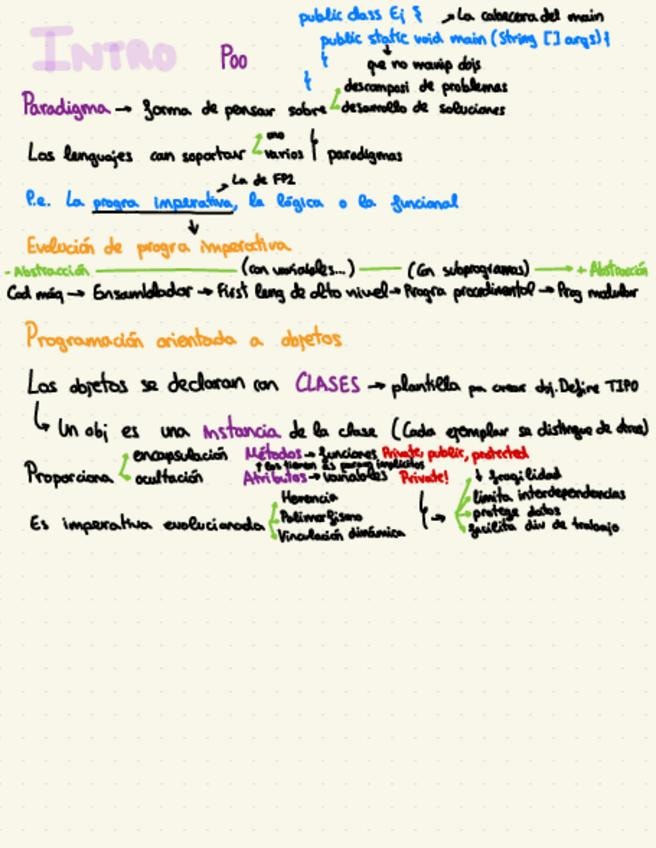 INTRO POO
public class Ej { → La cabecera del main
public static void main (String [] args) {
}
que no manip objs
}
Paradigma → forma de pensar sobre
descomposi de problemas
desarrollo de soluciones
Los lenguajes can soportar
uno
varios
paradigmas
La de FP2
P.e. La progra imperativa, la lógica o la funcional
Evolución de progra imperativa
- Abstracción (con variables...) (Con subprogramas) → + Abstracción
Cod máq → Ensamblador → First leng de alto nivel → Progra procedimental → Prog modular
Programación orientada a objetos
Los objetos se declaran con CLASES → plantilla pa crear obj. Define TIPO
↳ Un obj es una instancia de la clase (Cada ejemplar se distingue de otros)
Proporciona
encapsulación
ocultación
Métodos → funciones Private, public, protected
↑ los tienen as param implícitos
Atributos → variables Private!
Es imperativa evolucionada
Herencia
Polimorfismo
Vinculación dinámica
↓ fragilidad
limita interdependencias
protege datos
facilita div de trabajo